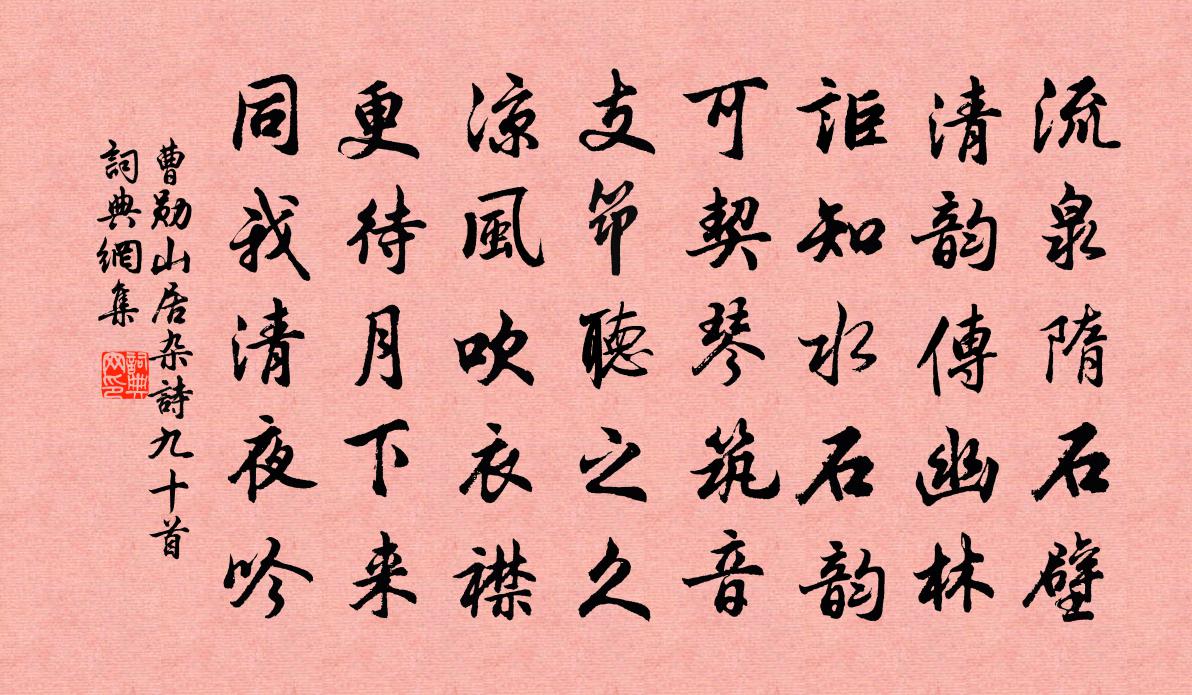 流泉隋石壁
清韵傳幽林
詎知水石韵
可契琴筑音
支筇聽之久
涼風吹衣襟
更待月下来
同我清夜吟
曹勋山居杂詩九十首
詞典網集
詞典网印